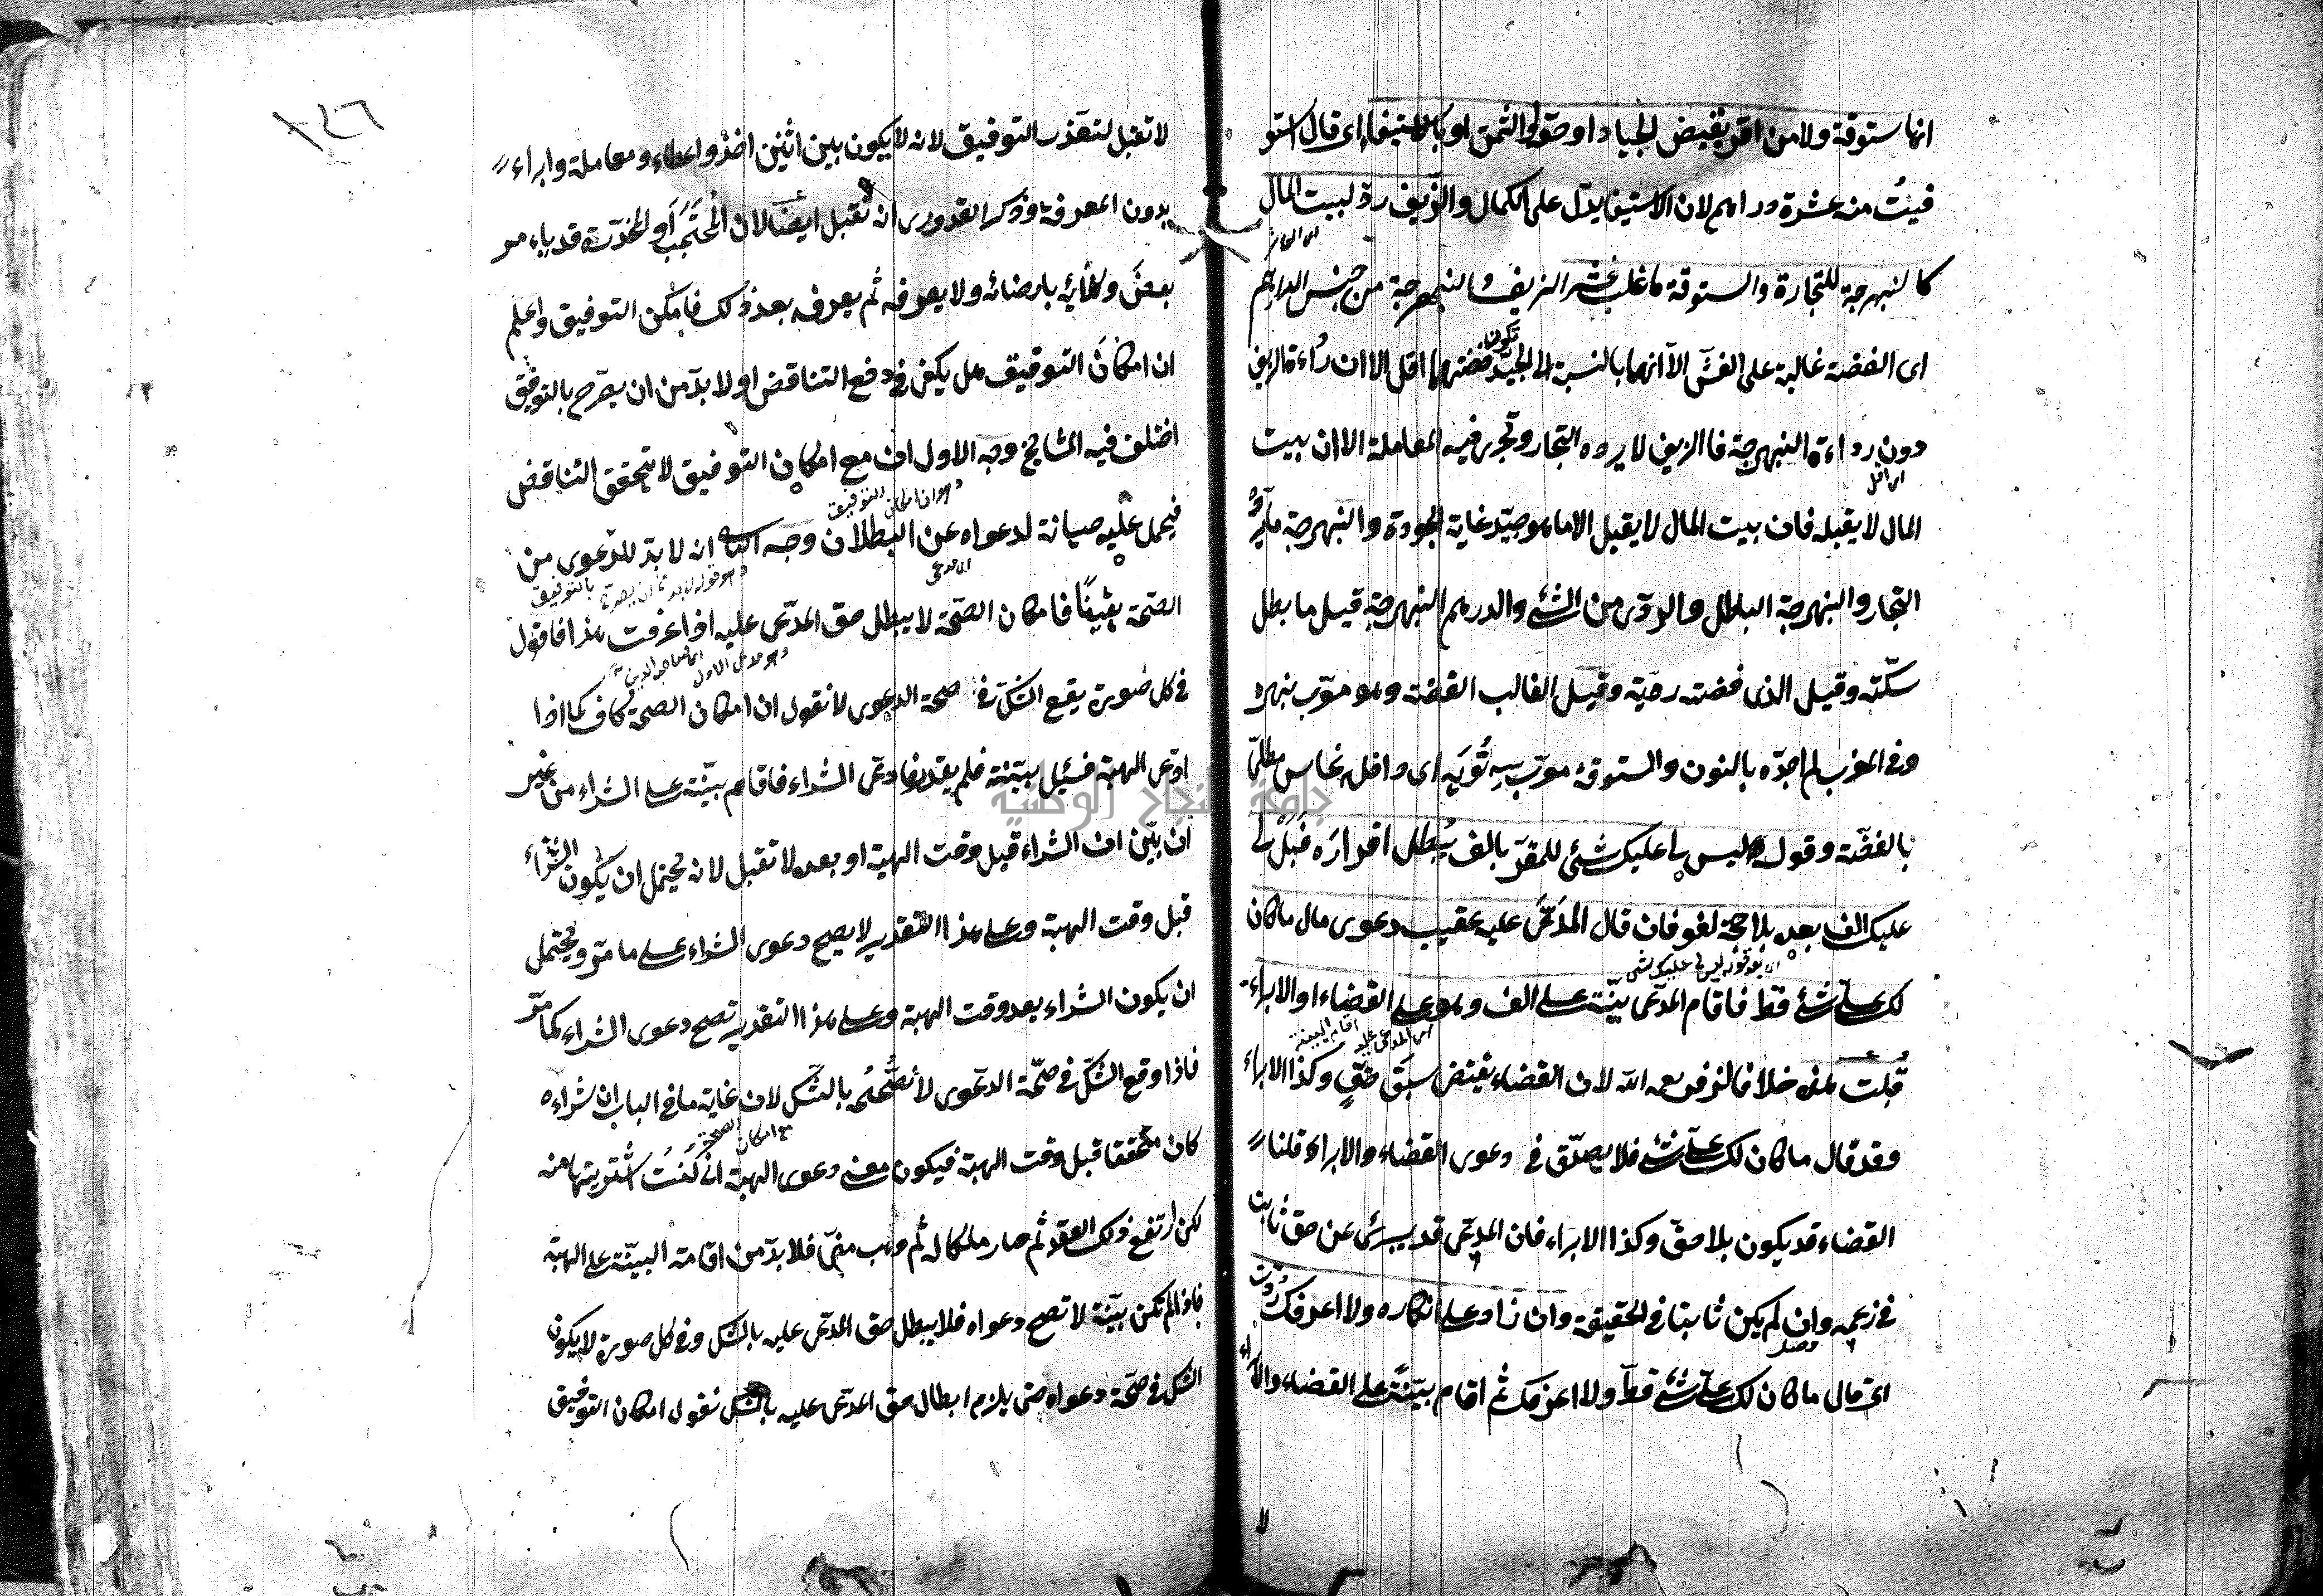 انها ستوقة ولا من اقر بقبض الجياد او حقه او الثمن او بالاستيفاء اى قال استو
فيت منه عشرة دراهم لان الاستيفا يدل على الكمال والزيف رده لبيت المال
كالنبهرجة للتجارة والستوقة ما غلب غشه الزيف والنبهرجة من جنس الدراهم
اى الفضة غالبة على الغش الا انهما بالنسبة الى الجيد تكون فضتهما اقل الا ان رداءة الزيف
دون رداءة النبهرجة فا الزيف لا يرده التجار وتجرى فيه المعاملة الا ان بيت
اى اقل
المال لا يقبله فان بيت المال لا يقبل الا ما هو جيد غاية الجودة والنبهرجة ما يرده
التجار والنبهرجة الباطل والردى من الشئ والدرهم النبهرجة قيل ما بطل
سكته وقيل الذى فضته ردية وقيل الغالب الفضة وهو معرب نبهره
وفى المغرب لم اجده بالنون والستوقة معرب سه تويه اى داخله نحاس مطلى
بالفضة وقوله ليس لى عليك شئ للمقر بالف يبطل اقراره قبل لى
عليك الف بعده بلا حجة لغو فان قال المدعى عليه عقيب دعوى مال ما كان
اى بعد قوله ليس لى عليك شى
لك على شئ قط فاقام المدعى بينة على الف وهو على القضاء او الابراء
اى المدعى عليه اقام البينة
قبلت هذه خلافا لزفر رحمه الله لان القضاء يقتضى سبق حق وكذا الابراء
وقد قال ما كان لك على شئ فلا يصدق فى دعوى القضاء والابراء وقلنا
القضاء قد يكون بلا حق وكذا الابراء فان المدعى قد يبرئ عن حق ثابت
فى زعمه وان لم يكن ثابتا فى الحقيقة وان زاد على انكاره ولا اعرفك ردت
اى قال ما كان لك على شئ قط ولا اعرفك ثم اقام بينة على القضاء والابراء
١٤٦
لا تقبل لتعذر التوفيق لانه لا يكون بين اثنين اخذ واعطاء ومعاملة وابراء
بدون المعرفة وذكر القدورى انه تقبل ايضا لان المحتجب او المخدرة قد يامر
بعض وكلائه بارضائه ولا يعرفه ثم يعرفه بعد ذلك فامكن التوفيق واعلم
ان امكان التوفيق هل يكفى فى دفع التناقض او لا بد من ان يصرح بالتوفيق
اختلف فيه المشايخ وجه الاول ان مع امكان التوفيق لا يتحقق التناقض
وهو ان امكان التوفيق
فيحمل عليه صيانة لدعواه عن البطلان وجه الثانى انه لا بد للدعوى من
وهو قوله لا بد من ان يصرح بالتوفيق
الصحة يقينًا فامكان الصحة لا يبطل حق المدعى عليه اذا عرفت هذا فاقول
فى كل صورة يقع الشك فى صحة الدعوى لا نقول ان امكان الصحة كاف كما اذا
ادعى الهبة فسئل بينة فلم يقدر فادعى الشراء فاقام بينة على الشراء من غير
ان يبين ان الشراء قبل وقت الهبة او بعده لا تقبل لانه يحتمل ان يكون الشراء
قبل وقت الهبة وعلى هذا التقدير لا يصح دعوى الشراء على ما مر ويحتمل
ان يكون الشراء بعد وقت الهبة وعلى هذا التقدير تصح دعوى الشراء كما مر
فاذا وقع الشك فى صحة الدعوى لا نصححه بالشك لان غاية ما فى الباب ان شراءه
مع امكان الصحة
كان متحققا قبل وقت الهبة فيكون معنى دعوى الهبة انى كنت اشتريتها منه
لكن ارتفع ذلك العقد ثم صار ملكا له ثم وهب منى فلا بد من اقامة البينة على الهبة
فاذا لم تكن بينة لا تصح دعواه فلا يبطل حق المدعى عليه بالشك وفى كل صورة لا يكون
الشك فى صحة دعواه حتى يلزم ابطال حق المدعى عليه بالشك نقول امكان التوفيق
جامعة النجاح الوطنية